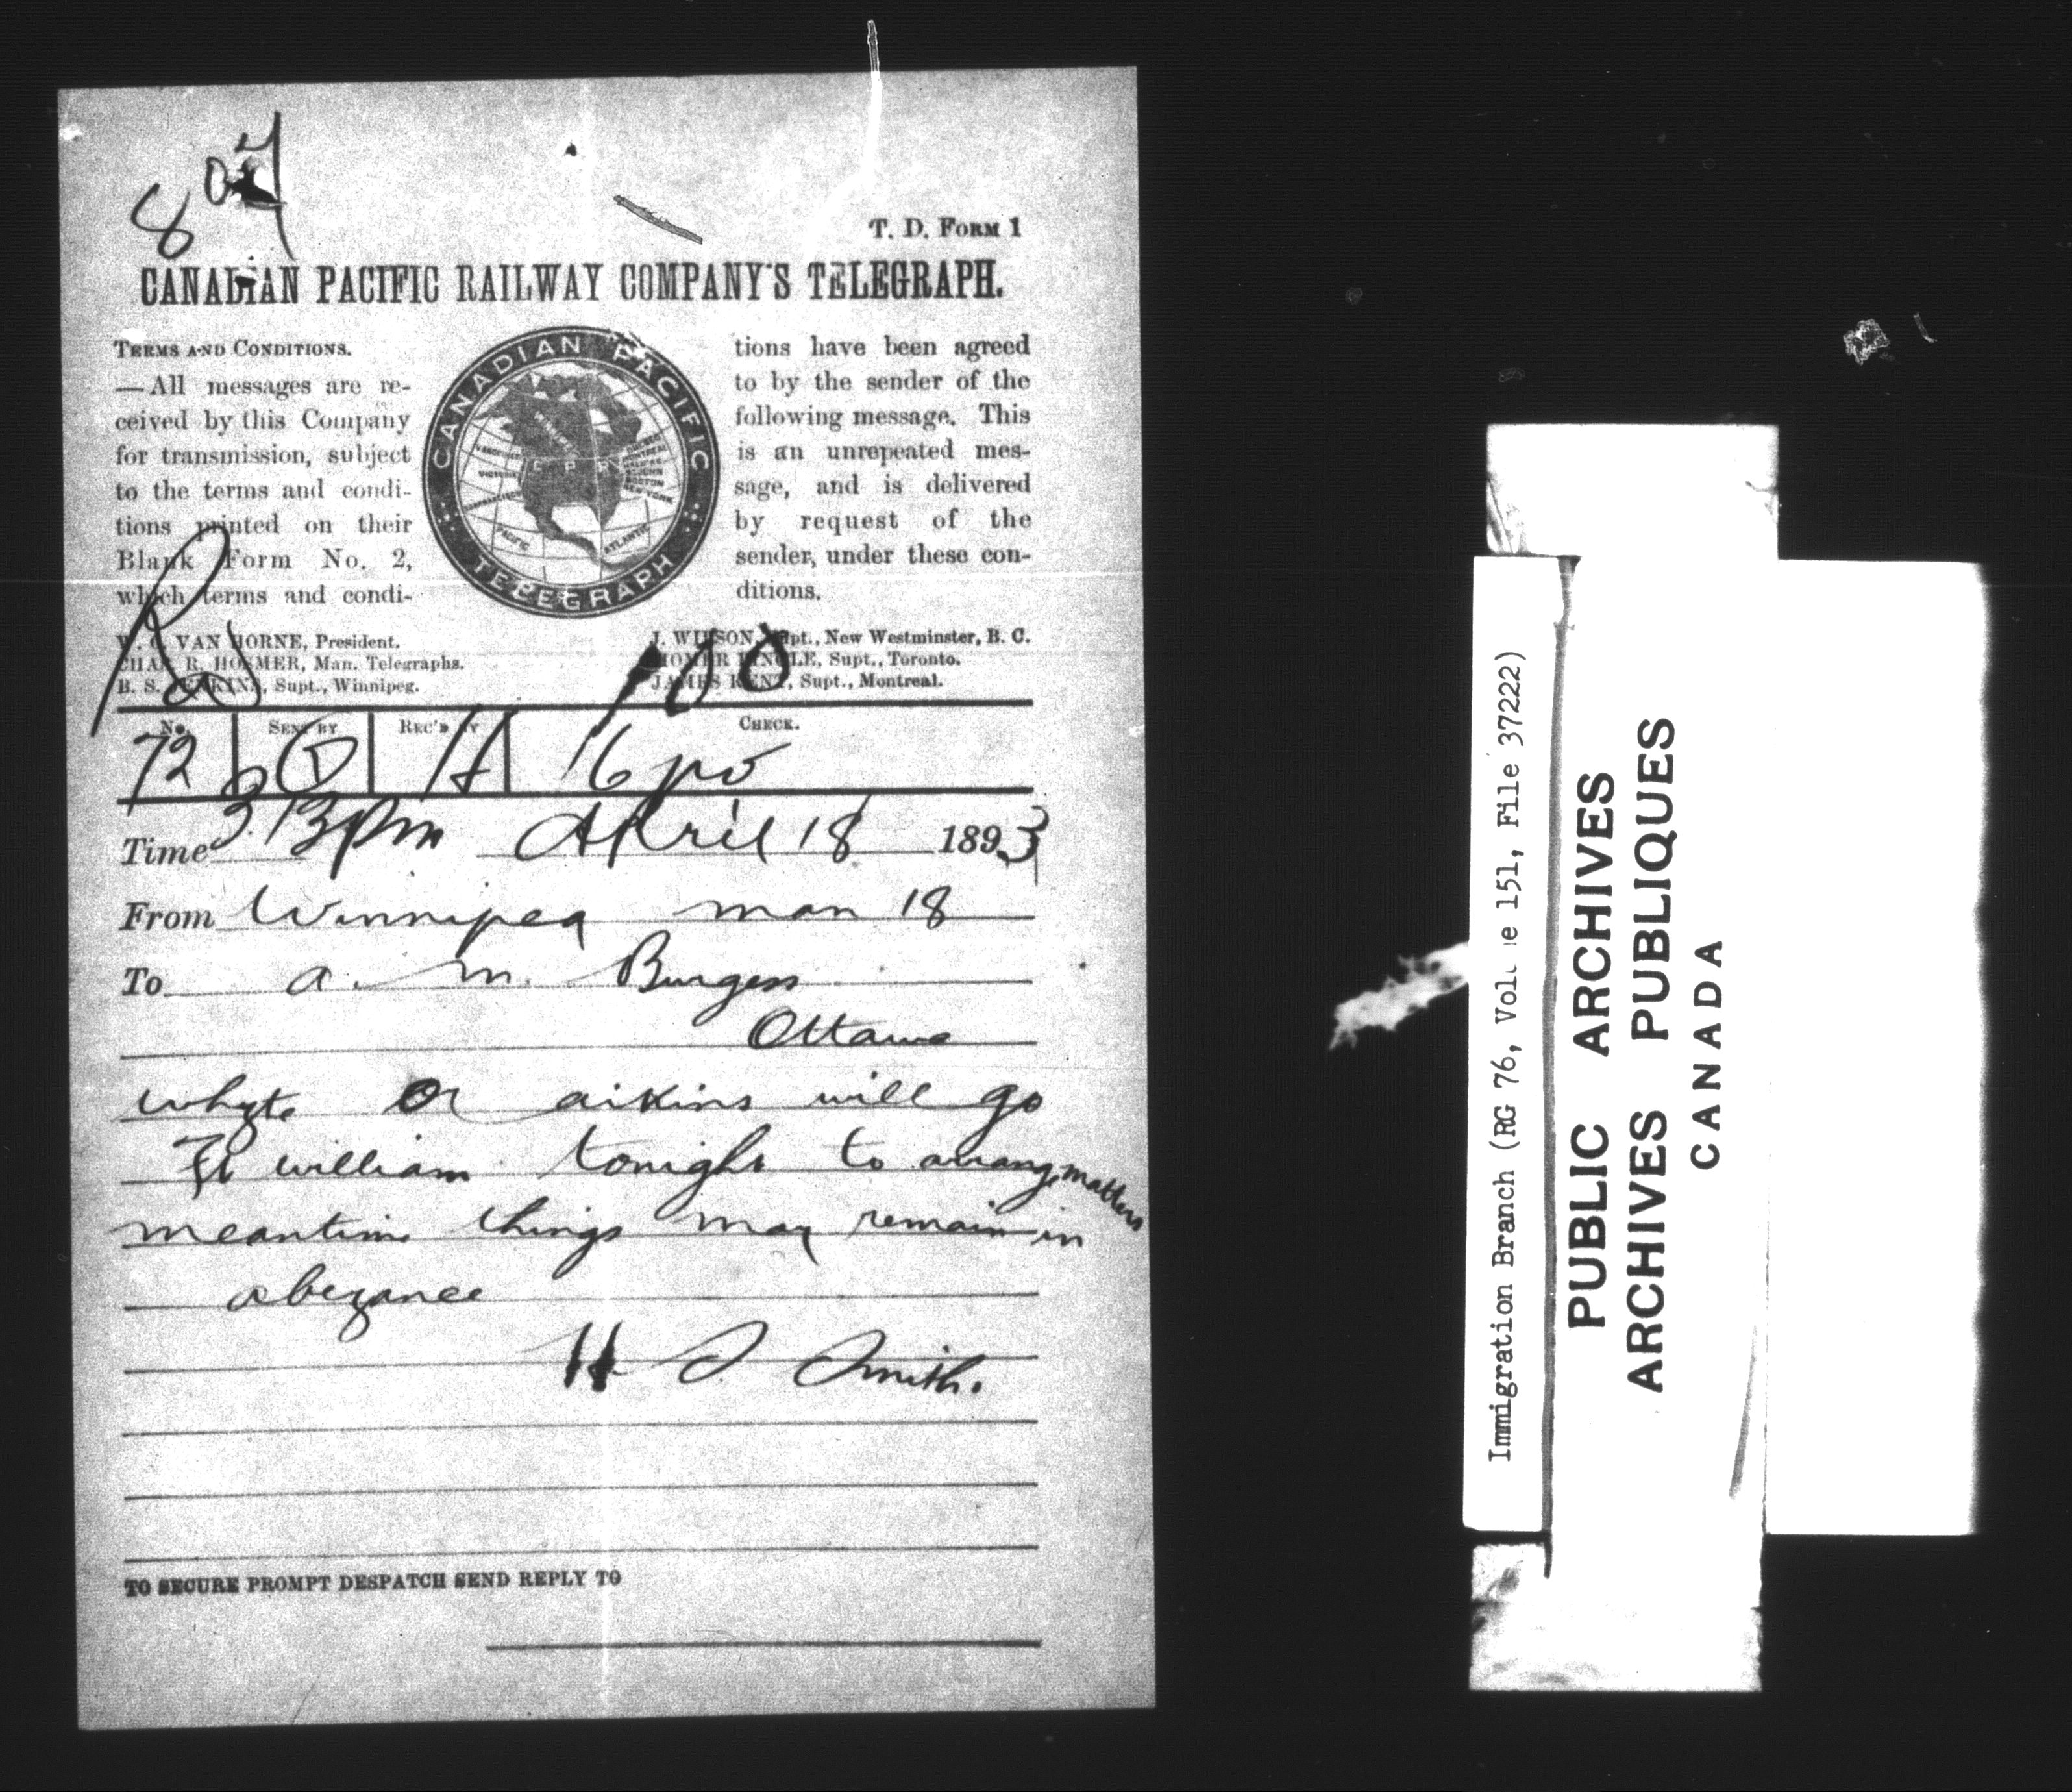 807
T. D. FORM 1
CANADIAN PACIFIC RAILWAY COMPANY'S TELEGRAPH.
TERMS AND CONDITIONS.
—All messages are re-
ceived by this Company
for transmission, subject
to the terms and condi-
tions printed on their
Blank Form No. 2,
which terms and condi-
CANADIAN PACIFIC
TELEGRAPH
VANCOUVER
VICTORIA
C P R
MONTREAL
HALIFAX
ST JOHN
BOSTON
NEW YORK
PACIFIC
ATLANTIC
tions have been agreed
to by the sender of the
following message. This
is an unrepeated mes-
sage, and is delivered
by request of the
sender, under these con-
ditions.
W. C. VAN HORNE, President.
CHAS. R. HOSMER, Man. Telegraphs.
B. S. JENKINS, Supt., Winnipeg.
J. WILSON, Supt., New Westminster, B. C.
HOMER PINGLE, Supt., Toronto.
JAMES KENT, Supt., Montreal.
No. SENT BY REC'D BY CHECK.
72 H 16
Time 3.13pm April 18 1893
From Winnipeg man 18
To a. m. Burgess
Ottawa
whyte or aikins will go
Ft william tonight to arrange matters
meantime things may remain in
abeyance
H J Smith.
TO SECURE PROMPT DESPATCH SEND REPLY TO
Immigration Branch (RG 76, Volume 151, File 37222)
PUBLIC ARCHIVES
ARCHIVES PUBLIQUES
CANADA